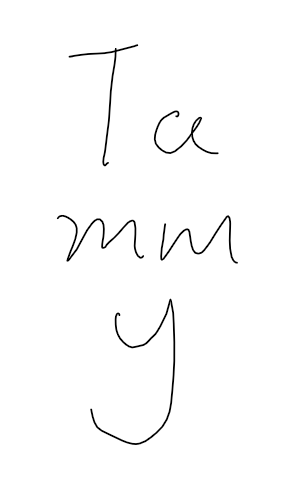 Ta
mm
y